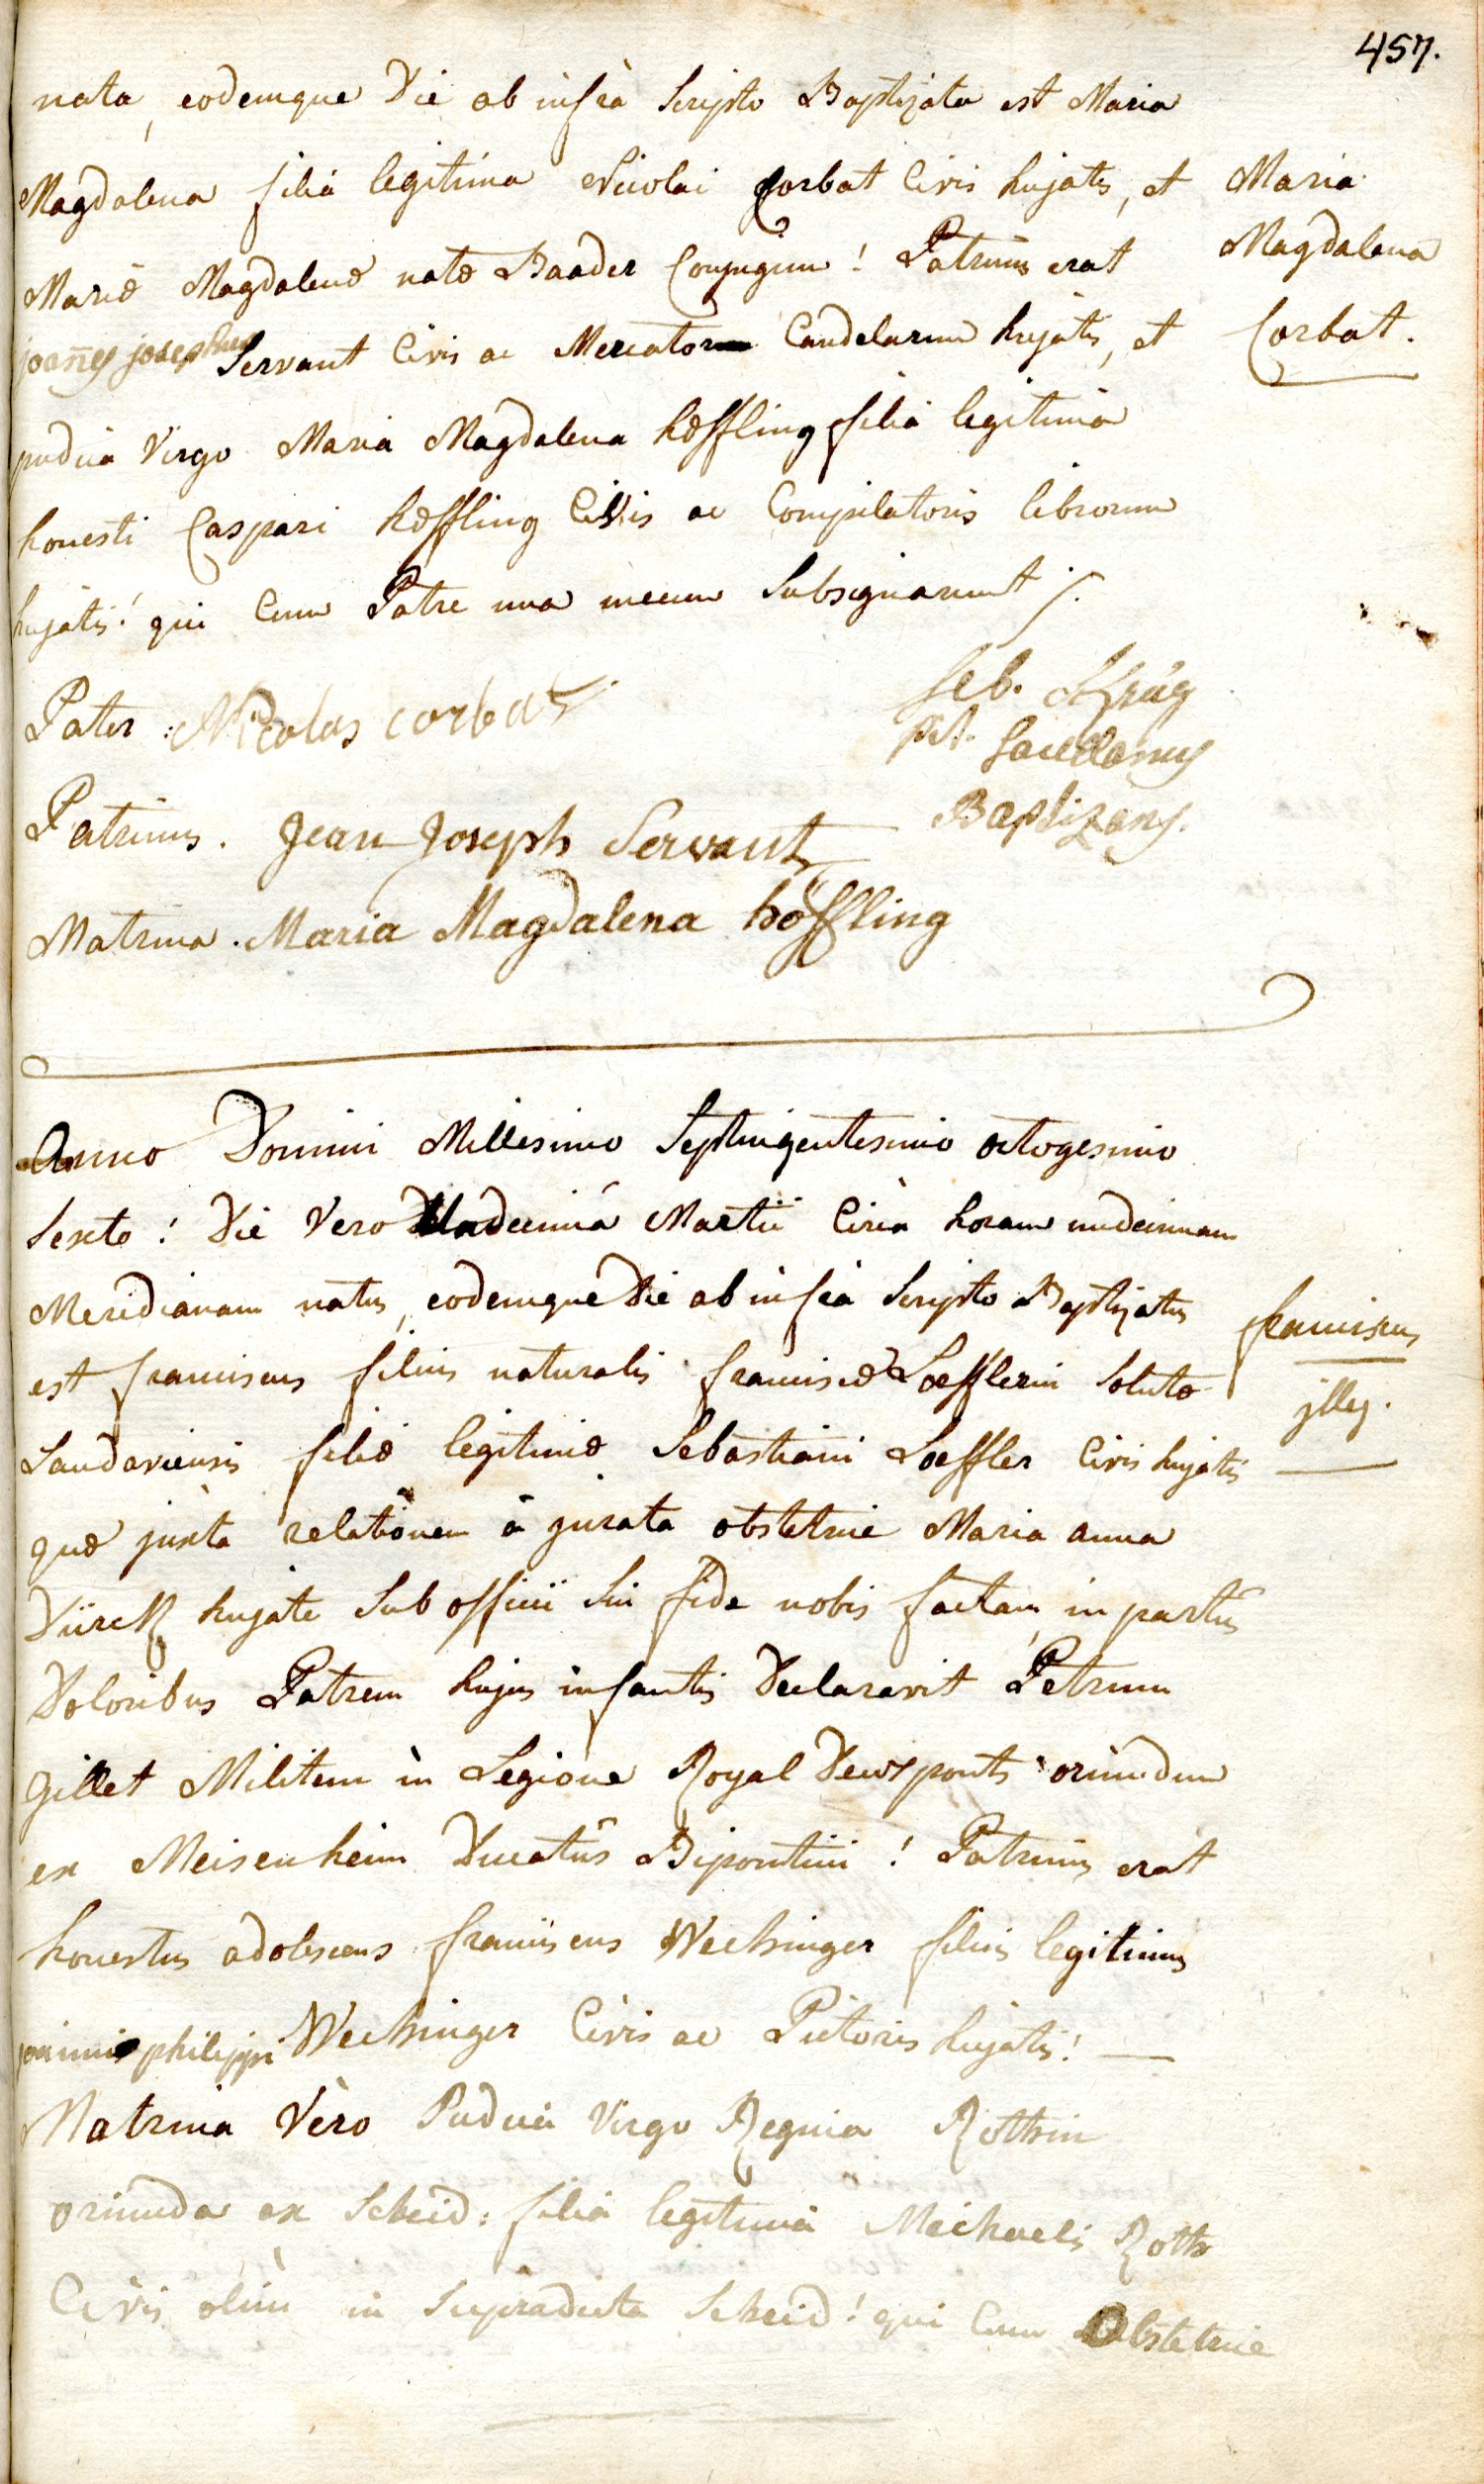 457.
nata, eodemque Die ab infrà Scripto Baptizata est Maria
Magdalena filia legitima Nicolai Corbat Civis hujatis, et
Mariæ Magdalenæ natæ Baader Conjugum! Patrinus erat
joañes josephus Servant Civis ac Mercator Candelarum hujatis, et
pudica Virgo Maria Magdalena hoeffling filia legitima
honesti Caspari hoeffling Civis ac Compilatoris librorum
hujatis! qui Cum Patre una mecum Subsignarunt
Maria
Magdalena
Corbat.
Pater: Nicolas corbat
Seb. Krug
Baptizans.
Patrinus. Jean Joseph Servant
Matrina. Maria Magdalena höffling
Anno Domini Millesimo Septingentesimo octogesimo
Sexto! Die Vero Undecimâ Martii Circà horam undecimam
Meridianam natus, eodemque Die ab infrà Scripto Baptizatus
est franciscus filius naturalis franciscæ Loefflerin Solutæ
Landaviensis filiæ legitimæ Sebastiani Loeffler Civis hujatis
quæ juxta relationem à jurata obstetrice Maria anna
Dürck hujate Sub officii Sui fide nobis factam, in partûs
Doloribus Patrem hujus infantis Declaravit Petrum
Gillet Militem in Legione Royal Deuxponts oriundum
ex Meisenheim Ducatûs Bipontini! Patrinus erat
honestus adolescens franciscus Wechinger filius legitimus
joannis philippi Wechinger Civis ac Pictoris hujatis!
Matrina Vero Pudica Virgo Regina Rothin
oriunda ex Scheid: filia legitima Michaelis Roth
Civis olim in Supradicta Scheid! qui Cum Obstetrice
franciscus
jlleg.